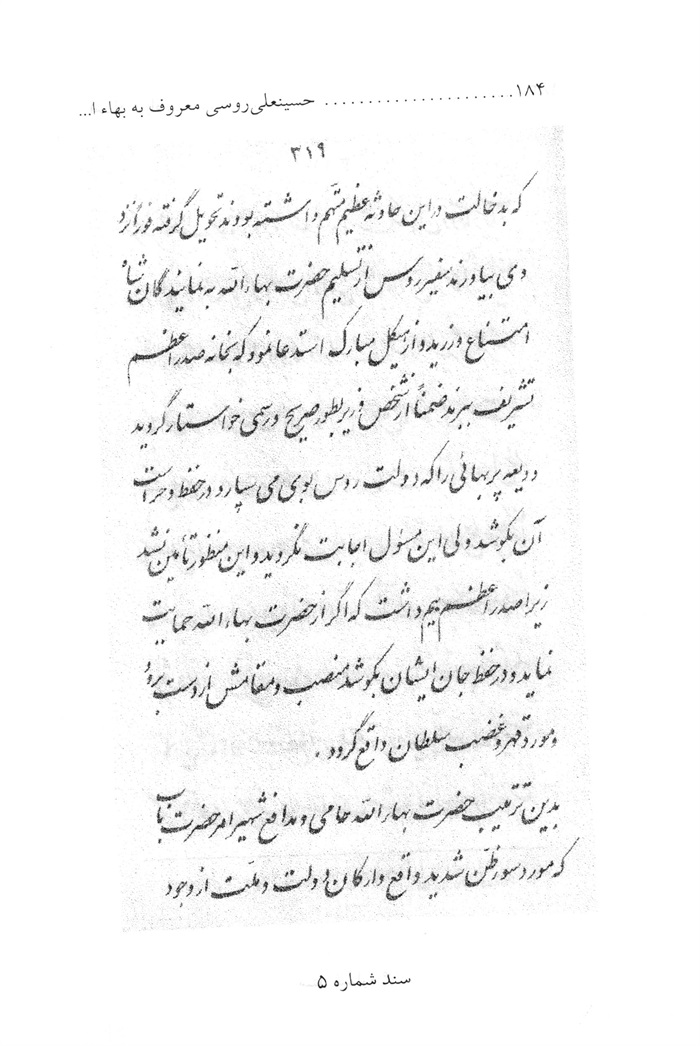 ۱۸۴ ...................... حسینعلی روسی معروف به بهاء ا...
۳۱۹
که بدخالت در این حادثه عظیم متهم داشته بودند تحویل گرفته فوراً نزد
وی بیاورند سفیر روس از تسلیم حضرت بهاءالله به نمایندگان شاه
امتناع ورزید و از هیکل مبارک استدعا نمود که بخانه صدر اعظم
تشریف ببرند ضمناً از شخص وزیر بطور صریح و رسمی خواستار گردید
ودیعه پربهائی را که دولت روس بوی می سپارد در حفظ و حراست
آن بکوشد ولی این مسئول اجابت نگردید و این منظور تأمین نشد
زیرا صدر اعظم بیم داشت که اگر از حضرت بهاءالله حمایت
نماید و در حفظ جان ایشان بکوشد منصب و مقامش از دست برود
و مورد قهر و غضب سلطان واقع گردد .
بدین ترتیب حضرت بهاءالله حامی و مدافع شهیر امر حضرت باب
که مورد سوء ظن شدید واقع و ارکان دولت و ملت از وجود
سند شماره ۵